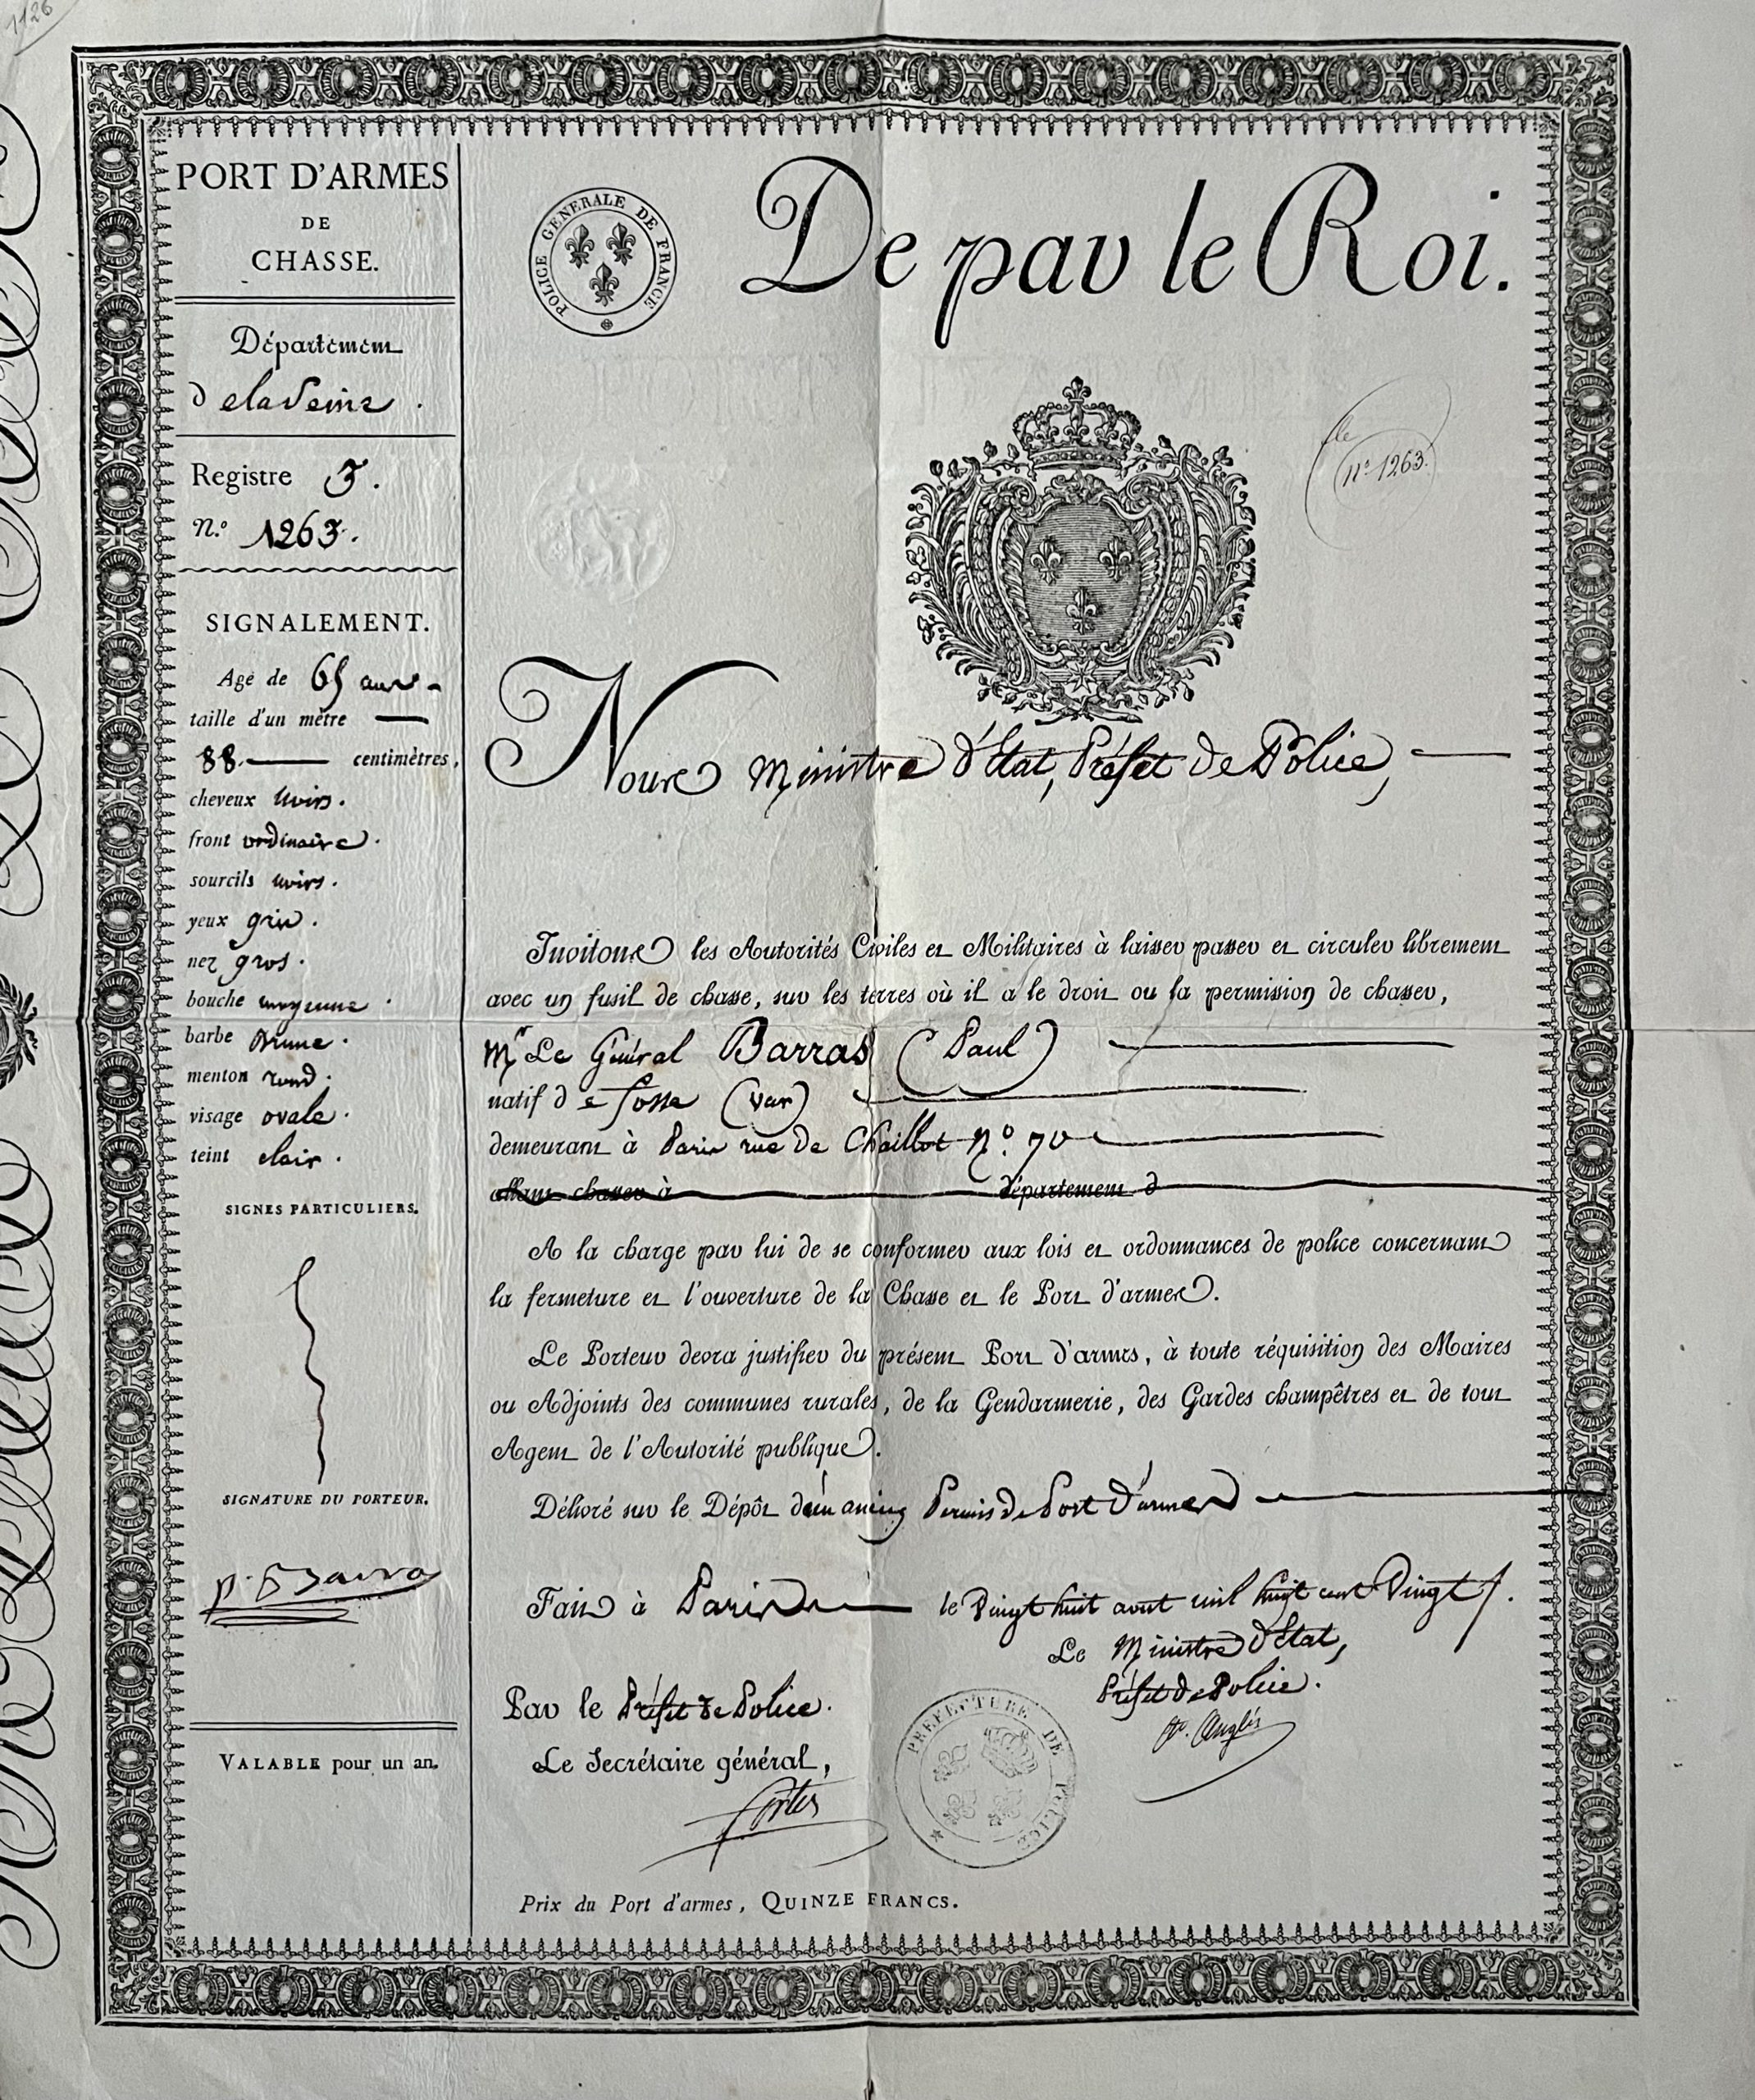 1126
PORT D'ARMES
DE
CHASSE.
Département
de la Seine.
Registre 3.
N.º 1263.
SIGNALEMENT.
Agé de 65 ans
taille d'un mètre
88. centimètres,
cheveux noirs.
front ordinaire.
sourcils noirs.
yeux gris.
nez gros.
bouche moyenne.
barbe brune.
menton rond.
visage ovale.
teint clair.
SIGNES PARTICULIERS.
SIGNATURE DU PORTEUR.
P. Barras
VALABLE pour un an.
POLICE GENERALE DE FRANCE
De par le Roi.
nº 1263.
Nous Ministre d'Etat, Préfet de Police,
Invitons les Autorités Civiles et Militaires à laisser passer et circuler librement
avec un fusil de chasse, sur les terres où il a le droit ou la permission de chasser,
Mr Le Général Barras (Paul)
natif de fosse (Var)
demeurant à Paris rue de Chaillot Nº. 70
allant chasser à département d
A la charge par lui de se conformer aux lois et ordonnances de police concernant
la fermeture et l'ouverture de la Chasse et le Port d'armes.
Le Porteur devra justifier du présent Port d'armes, à toute réquisition des Maires
ou Adjoints des communes rurales, de la Gendarmerie, des Gardes champêtres et de tout
Agent de l'Autorité publique.
Délivré sur le Dépôt d'un ancien Permis de Port d'armes
Fait à Paris le Vingt huit aout mil huit cent Vingt
Le Ministre d'Etat,
Préfet de Police.
Cte. Anglès
Par le Préfet de Police.
Le Secrétaire général,
PREFECTURE DE POLICE
Prix du Port d'armes, QUINZE FRANCS.